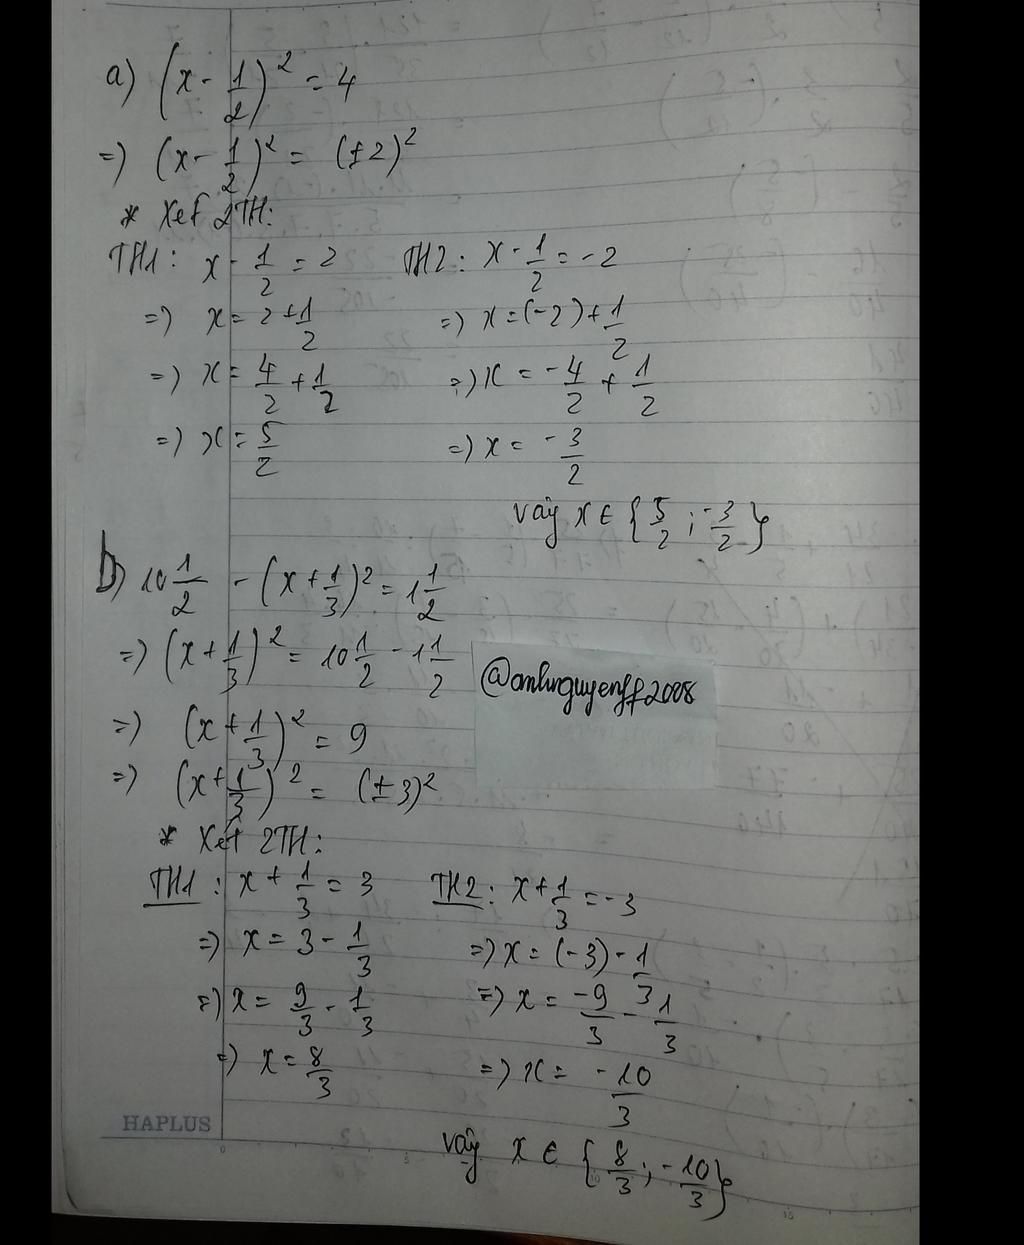 a) (x - 1/2)² = 4
=) (x - 1/2)² = (±2)²
* Xét 2TH:
TH1: x - 1/2 = 2 TH2: x - 1/2 = -2
=) x = 2 + 1/2 =) x = (-2) + 1/2
=) x = 4/2 + 1/2 =) x = -4/2 + 1/2
=) x = 5/2 =) x = -3/2
vậy x ∈ {5/2; -3/2}
b) 10 1/2 - (x + 1/3)² = 1 1/2
=) (x + 1/3)² = 10 1/2 - 1 1/2
@anhnguyenff2008
=) (x + 1/3)² = 9
=) (x + 1/3)² = (±3)²
* Xét 2TH:
TH1: x + 1/3 = 3 TH2: x + 1/3 = -3
=) x = 3 - 1/3 =) x = (-3) - 1/3
=) x = 9/3 - 1/3 =) x = -9/3 - 1/3
=) x = 8/3 =) x = -10/3
HAPLUS
vậy x ∈ {8/3; -10/3}